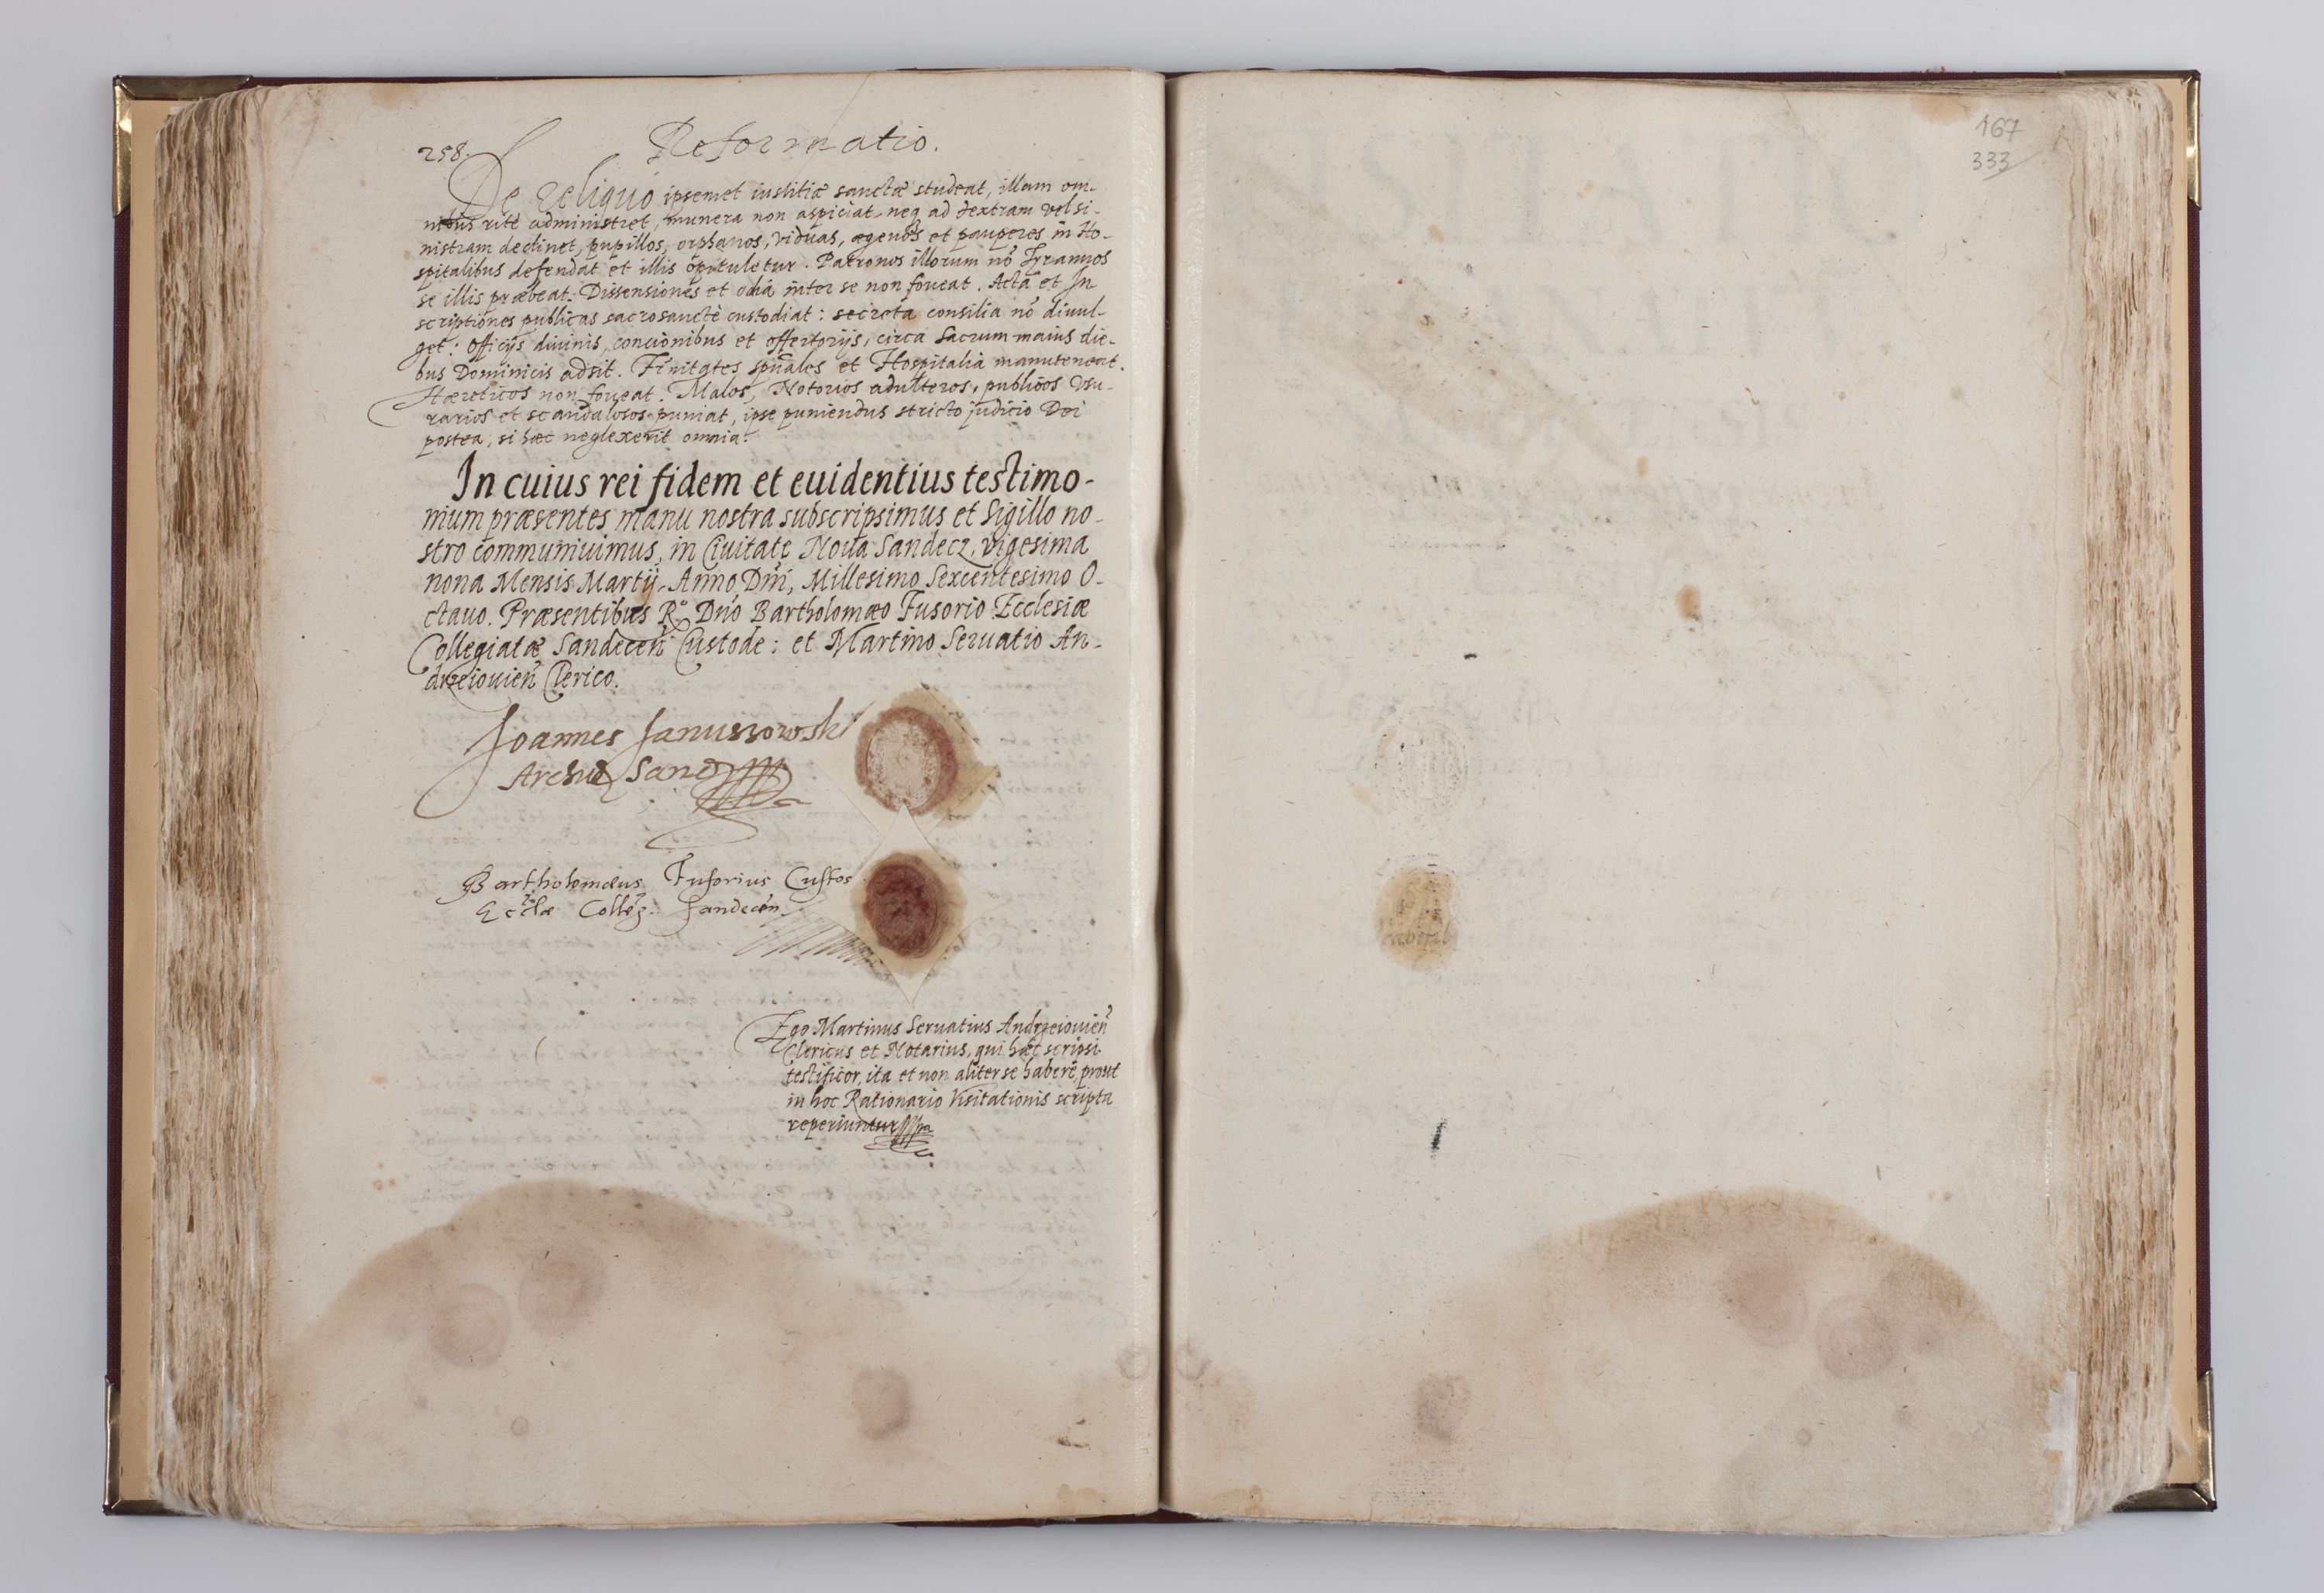 258. Reformatio.
De reliquo ipsemet iustitiæ sanctæ studeat, illam om-
nibus rite administret, munera non aspiciat neq ad dextram vel si-
nistram declinet, pupillos, orphanos, viduas, ægenos et pauperes in Ho-
spitalibus defendat et illis opituletur. Patronos illorum nō Tyrannos
se illis præbeat. Dissensiones et odia inter se non foveat. Acta et In
scriptiones publicas sacrosanctè custodiat: secreta consilia nō diuul-
get: Officijs diuinis, concionibus et offertorijs, circa Sacrum maius die-
bus Dominicis adsit. Frnitates spūales et Hospitalia manuteneat.
Hæreticos non foveat. Malos, Notorios adulteros, publicos Vsu-
rarios et scandalosos puniat, ipse puniendus stricto judicio Dei
postea, si hæc neglexerit omnia.
In cuius rei fidem et euidentius testimo-
nium præsentes manu nostra subscripsimus et Sigillo no-
stro communiuimus, in Ciuitate Noua Sandecz, vigesima
nona Mensis Martij, Anno Dnī, Millesimo Sexcentesimo O-
ctauo. Præsentibus Rᵒ Dn̄o Bartholomæo Fusorio Ecclesiæ
Collegiatæ Sandecen̄ Custode: et Martino Seruatio An-
drzeiouien̄ Clerico.
Joannes Januszowski
Archid Sand
Bartholomæus Fusorius Custos
Ecclæ Colleg. Sandecen̄
Ego Martinus Seruatius Andrzeiouien̄
Clericus et Notarius, qui hæc scripsi
testificor, ita et non aliter se habere, prout
in hoc Rationario Visitationis scripta
reperiuntur
167
333